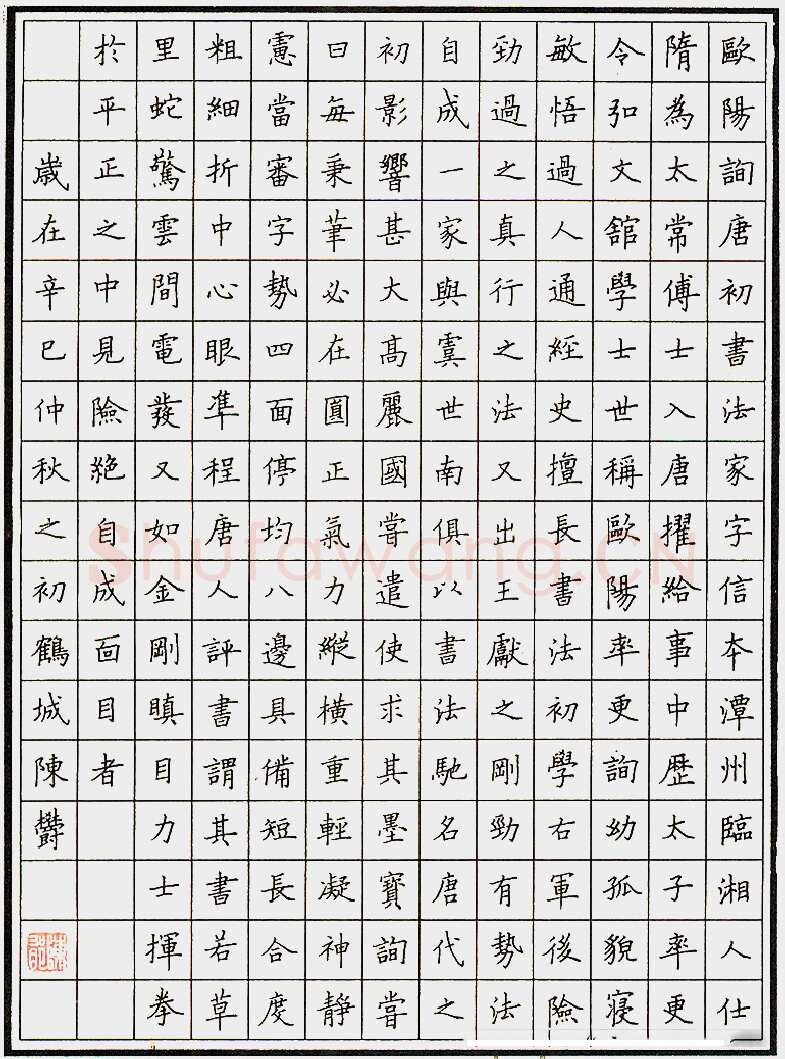 歐陽詢唐初書法家字信本潭州臨湘人仕
隋為太常傅士入唐擢給事中歷太子率更
令弘文舘學士世稱歐陽率更詢幼孤貌寢
敏悟過人通經史擅長書法初學右軍後險
勁過之真行之法又出王獻之剛勁有勢法
自成一家與虞世南俱以書法馳名唐代之
初影響甚大高麗國嘗遣使求其墨寶詢嘗
曰每秉筆必在圓正氣力縱橫重輕凝神靜
慮當審字勢四面停均八邊具備短長合度
粗細折中心眼準程唐人評書謂其書若草
里蛇驚雲間電發又如金剛瞋目力士揮拳
於平正之中見險絕自成面目者
歲在辛巳仲秋之初鶴城陳欝
Shufawang.CN